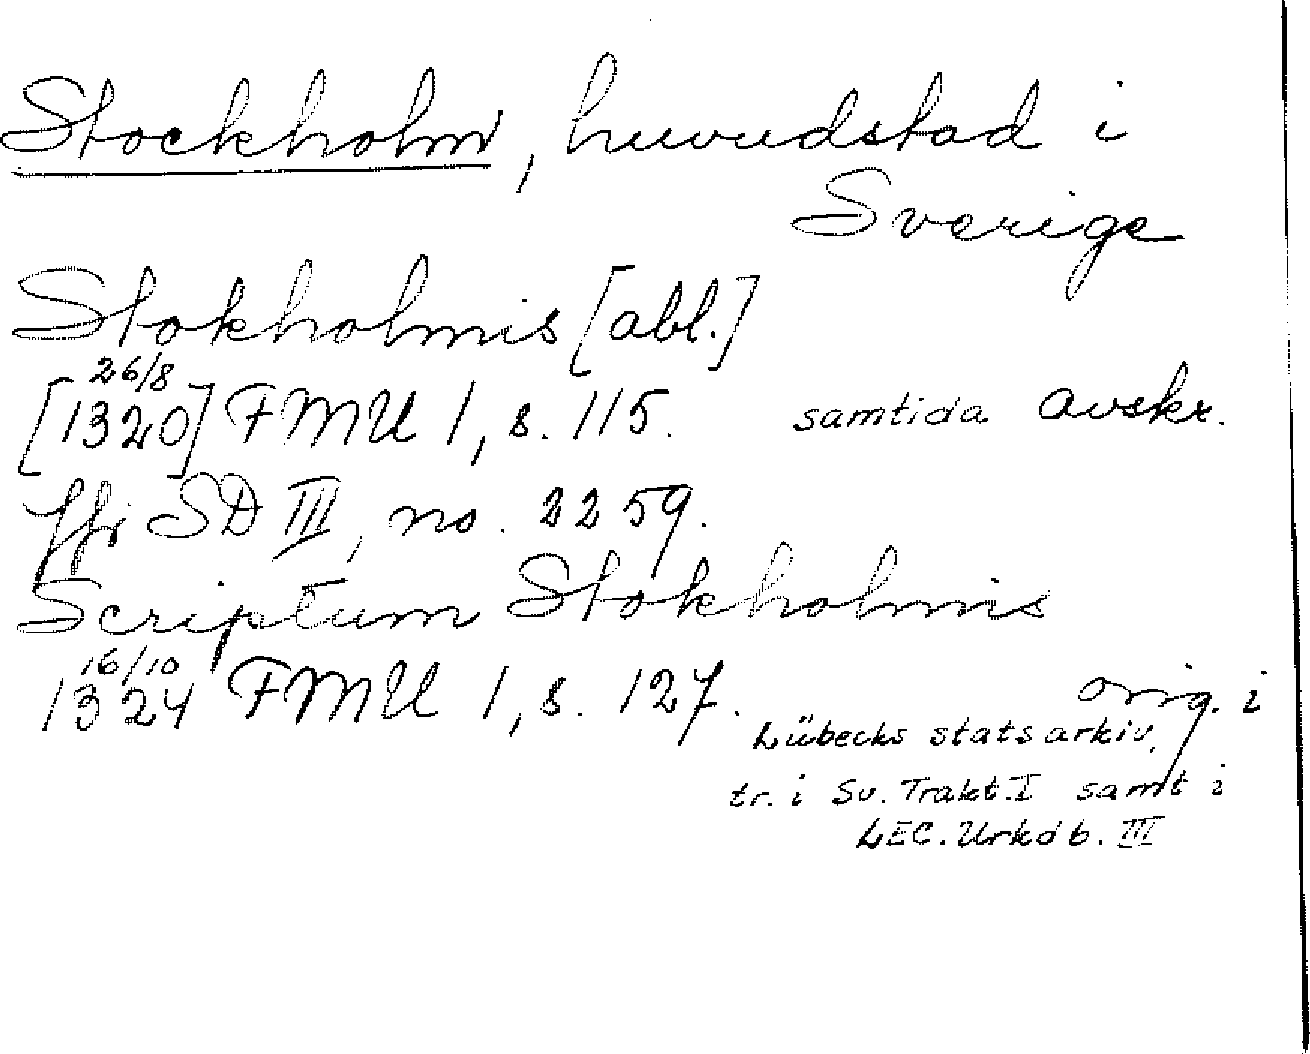 Stockholm, huvudstad i
Sverige
Stokholmis [abl.]
26/8
[1320] FMU 1, s. 115. samtida avskr.
SD III, no. 2259.
Scriptum Stokholmis
16/10
1324 FMU 1, s. 127. orig. i
Lübecks statsarkiv,
tr. i Sv. Trakt. I samt i
LEC. Urkdb. III